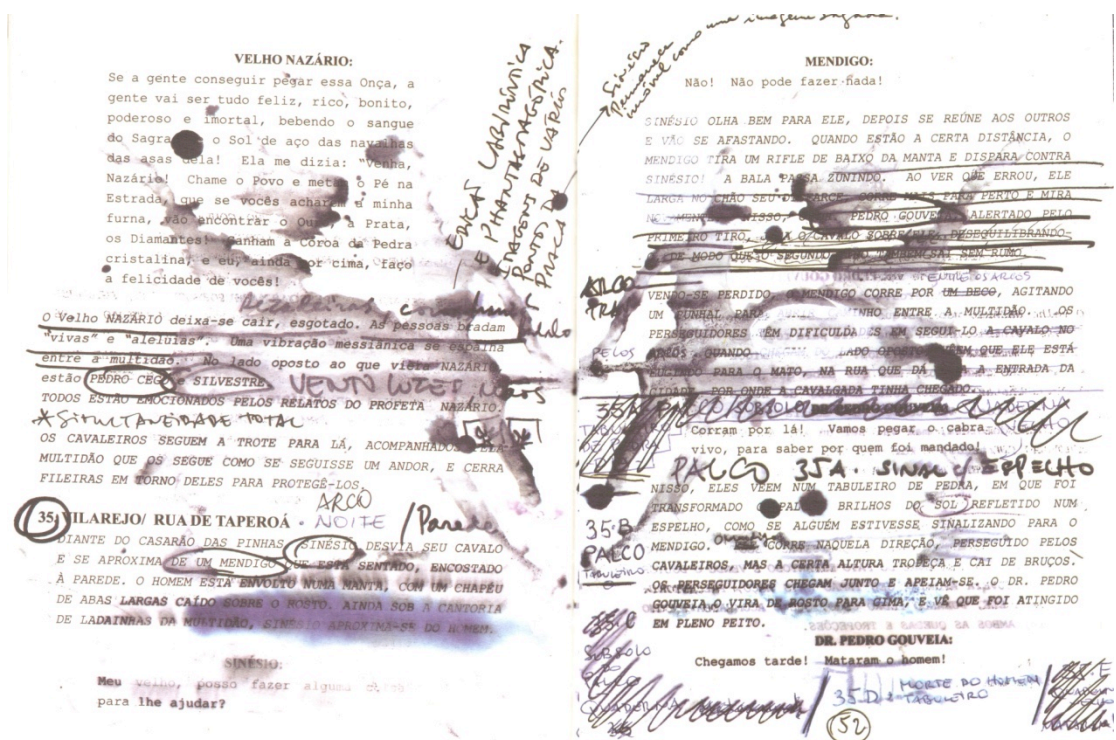 VELHO NAZÁRIO:
Se a gente conseguir pegar essa Onça, a
gente vai ser tudo feliz, rico, bonito,
poderoso e imortal, bebendo o sangue
do Sagra o Sol de aço das navalhas
das asas dela! Ela me dizia: "Venha,
Nazário! Chame o Povo e meta o Pé na
Estrada, que se vocês acharem a minha
furna, vão encontrar o Ouro, a Prata,
os Diamantes! Ganham a Coroa da Pedra
cristalina, e eu, ainda por cima, faço
a felicidade de vocês!
ERICAS LABIRÍNTICA
E PHANTASMAGÓRICA.
PONTO DE VÁRIOS
PRAÇA DA
O Velho NAZÁRIO deixa-se cair, esgotado. As pessoas bradam
"vivas" e "aleluias". Uma vibração messiânica se espalha
entre a multidão. No lado oposto ao que viera NAZÁRIO
estão PEDRO CEGO e SILVESTRE VENTO LUZES
TODOS ESTÃO EMOCIONADOS PELOS RELATOS DO PROFETA NAZÁRIO.
*SIMULTANEIDADE TOTAL
OS CAVALEIROS SEGUEM A TROTE PARA LÁ, ACOMPANHADOS PELA
MULTIDÃO QUE OS SEGUE COMO SE SEGUISSE UM ANDOR, E CERRA
FILEIRAS EM TORNO DELES PARA PROTEGÊ-LOS.
ARCO
35 VILAREJO/ RUA DE TAPEROÁ. NOITE /Parede
DIANTE DO CASARÃO DAS PINHAS, SINÉSIO DESVIA SEU CAVALO
E SE APROXIMA DE UM MENDIGO QUE ESTÁ SENTADO, ENCOSTADO
À PAREDE. O HOMEM ESTÁ ENVOLTO NUMA MANTA, COM UM CHAPÉU
DE ABAS LARGAS CAÍDO SOBRE O ROSTO. AINDA SOB A CANTORIA
DE LADAINHAS DA MULTIDÃO, SINÉSIO APROXIMA-SE DO HOMEM.
SINÉSIO:
Meu velho, posso fazer alguma
para lhe ajudar?
como uma imagem sagrada.
Sinésio
Permanece
imóvel
MENDIGO:
Não! Não pode fazer nada!
SINÉSIO OLHA BEM PARA ELE, DEPOIS SE REÚNE AOS OUTROS
E VÃO SE AFASTANDO. QUANDO ESTÃO A CERTA DISTÂNCIA, O
MENDIGO TIRA UM RIFLE DE BAIXO DA MANTA E DISPARA CONTRA
SINÉSIO! A BALA PASSA ZUNINDO. AO VER QUE ERROU, ELE
LARGA NO CHÃO SEU DISFARCE, CORRE MAIS PARA PERTO E MIRA
NOVAMENTE. NISSO, PEDRO GOUVEIA, ALERTADO PELO
PRIMEIRO TIRO, JOGA O CAVALO SOBRE ELE, DESEQUILIBRANDO-
O DE MODO QUE O SEGUNDO TIRO TAMBÉM SAI SEM RUMO.
ENTRE OS ARCOS
VENDO-SE PERDIDO, O MENDIGO CORRE POR UM BECO, AGITANDO
UM PUNHAL PARA CAMINHO ENTRE A MULTIDÃO. OS
PERSEGUIDORES TÊM DIFICULDADES EM SEGUI-LO A CAVALO NO
PELOS ARCOS QUANDO CHEGAM DO LADO OPOSTO, VEEM QUE ELE ESTÁ
PARA O MATO, NA RUA QUE DÁ A ENTRADA DA
CIDADE POR ONDE A CAVALGADA TINHA CHEGADO.
35A PALCO/SUBSOLO QUADERNA
Corram por lá! Vamos pegar o cabra
vivo, para saber por quem foi mandado!
PALCO 35A. SINAL C/ ESPELHO
NISSO, ELES VEEM NUM TABULEIRO DE PEDRA, EM QUE FOI
TRANSFORMADO PALCO BRILHOS DO SOL REFLETIDO NUM
ESPELHO, COMO SE ALGUÉM ESTIVESSE SINALIZANDO PARA O
MENDIGO. CORRE NAQUELA DIREÇÃO, PERSEGUIDO PELOS
CAVALEIROS, MAS A CERTA ALTURA TROPEÇA E CAI DE BRUÇOS.
OS PERSEGUIDORES CHEGAM JUNTO E APEIAM-SE. O DR. PEDRO
GOUVEIA O VIRA DE ROSTO PARA CIMA, E VÊ QUE FOI ATINGIDO
EM PLENO PEITO.
35.B
PALCO
TABULEIRO
DR. PEDRO GOUVEIA:
Chegamos tarde! Mataram o homem!
35.C
SUBSOLO
DO
PALCO
QUADERNA
35.D MORTE DO HOMEM
TABULEIRO
35.E
52